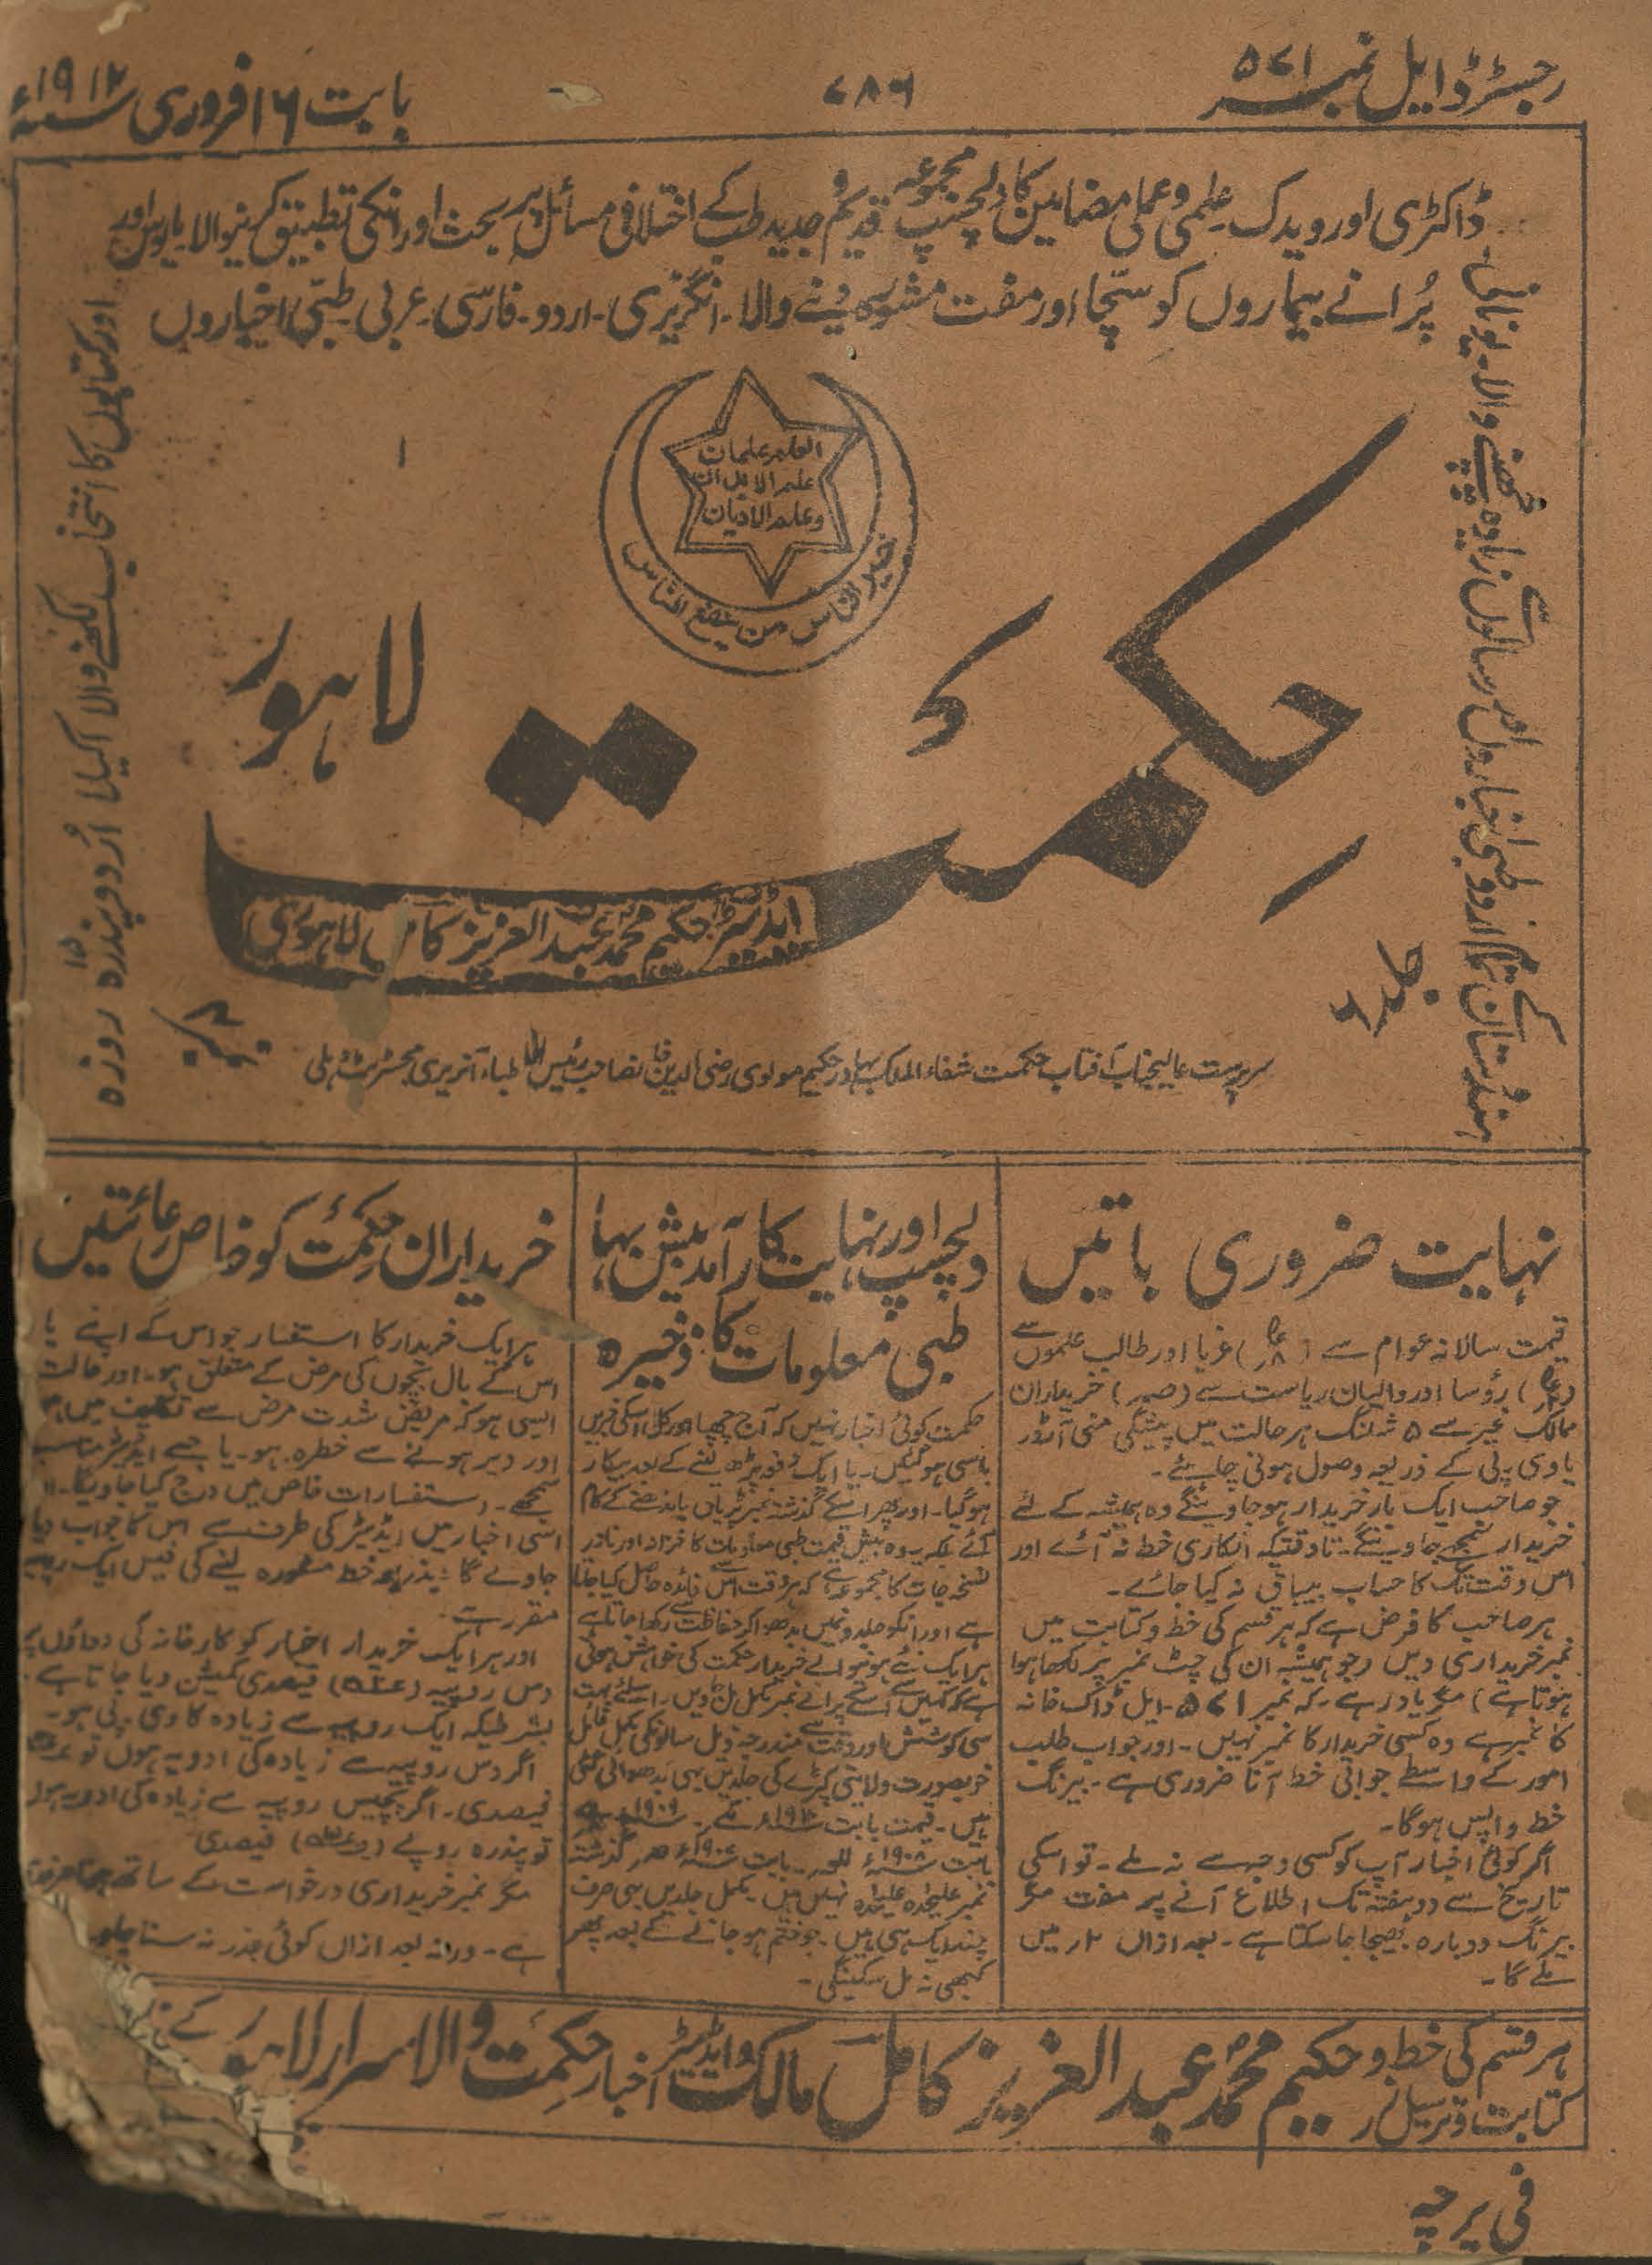 رجسٹرڈ ایل نمبر ۵۷۱
۷۸۶
بابت ۱۶ فروری ۱۹۱۲ء
ڈاکٹری اور ویدک علمی و عملی مضامین کا دلچسپ مجموعہ قدیم و جدید طب کے اختلافی مسائل پر بحث اور انکی تطبیق کرنیوالا مایوس اور
پرانے بیماروں کو سچا اور مفت مشورہ دینے والا۔ انگریزی۔ اردو۔ فارسی۔ عربی۔ طبّی اخباروں
اور کتابوں کا انتخاب لکھنے والا اکیلا اردو پندرہ ۱۵ روزہ
ہندوستان کے تمام اردو طبی اخباروں اور رسالوں سے زیادہ چھپنے والا۔ یونانی۔
العلم علمان
علم الابدان
وعلم الادیان
خیر الناس من ینفع الناس
حکمت
لاہور
ایڈیٹر حکیم محمد عبد العزیز کامل لاہوری
جلد
نمبر
سرپرست عالیجناب آفتاب حکمت شفاء الملک بہادر حکیم مولوی رضی الدین خانصاحب رئیس الاطباء آنریری مجسٹریٹ دہلی
نہایت ضروری باتیں
قیمت سالانہ عوام سے غربا اور طالب علموں سے
رؤسا اور والیان ریاست سے خریداران
ممالک غیر سے ۵ شلنگ ہر حالت میں پیشگی منی آرڈر
یا وی پی کے ذریعہ وصول ہونی چاہئے۔
جو صاحب ایک بار خریدار ہو جاوینگے وہ ہمیشہ کے لئے
خریدار سمجھے جاوینگے۔ تاوقتیکہ انکاری خط نہ آئے اور
اس وقت تک کا حساب بیباق نہ کیا جائے۔
ہر صاحب کا فرض ہے کہ ہر قسم کی خط و کتابت میں
نمبر خریداری دیں (جو ہمیشہ ان کی چٹ نمبر پر لکھا ہوا
ہوتا ہے) مگر یاد رہے۔ کہ نمبر ۵۷۱۔ ایل ڈاک خانہ
کا نمبر ہے وہ کسی خریدار کا نمبر نہیں۔ اور جواب طلب
امور کے واسطے جوابی خط آنا ضروری ہے۔ بیرنگ
خط واپس ہوگا۔
اگر کوئی اخبار آپ کو کسی وجہ سے نہ ملے۔ تو اسکی
تاریخ سے دو ہفتہ تک اطلاع آنے پر مفت مگر
بیرنگ دوبارہ بھیجا جا سکتا ہے۔ بعد ازاں ۲ر میں
ملے گا۔
دلچسپ اور نہایت کارآمد بیش بہا
طبی معلومات کا ذخیرہ
حکمت کوئی اخبار نہیں کہ آج چھپا اور کل اسکی خبریں
باسی ہو گئیں۔ یا ایک دفعہ پڑھ لینے کے بعد بیکار
ہو گیا۔ اور پھر اسکے گذشتہ نمبر پڑیاں باندھنے کے کام
آئے بلکہ یہ وہ بیش قیمت طبی معلومات کا خزانہ اور نادر
نسخہ جات کا مجموعہ ہے کہ ہر وقت اس سے فائدہ حاصل کیا جاتا
ہے اور انکو جلدوں میں بندھوا کر حفاظت سے رکھا جاتا ہے
ہر ایک نئے ہونیوالے خریدار حکمت کی خواہش ہوتی
ہے کہ کہیں سے اسکے پرانے نمبر مکمل مل جاویں۔ اسلئے بہت
سی کوشش اور دقت سے مندرجہ ذیل سالونکی مکمل فائل
خوبصورت ولایتی کپڑے کی جلدیں بھی بندھوائی گئی
ہیں۔ قیمت بابت ۱۹۱۰ء ۱۹۰۹ء
بابت ۱۹۰۸ء بابت ۱۹۰۷ء گذشتہ
نمبر علیحدہ علیحدہ نہیں ہیں۔ مکمل جلدیں بھی صرف
چند ایک ہی ہیں۔ جو ختم ہو جانے کے بعد پھر
کبھی نہ مل سکینگی۔
خریداران حکمت کو خاص رعائتیں
ہر ایک خریدار کا استفسار جو اس کے اپنے یا
اس کے بال بچوں کی مرض کے متعلق ہو۔ اور حالت
ایسی ہو کہ مریض شدت مرض سے تکلیف میں ہو
اور دیر ہونے سے خطرہ ہو۔ یا جسے ایڈیٹر مناسب
سمجھے۔ استفسارات خاص میں درج کیا جاویگا۔
اسی اخبار میں ایڈیٹر کی طرف سے اس کا جواب دیا
جاوے گا۔ بذریعہ خط مشورہ لینے کی فیس ایک روپیہ
مقرر ہے۔
اور ہر ایک خریدار اخبار کو کارخانہ کی دواؤں پر
دس روپیہ فیصدی کمیشن دیا جاتا ہے۔
بشرطیکہ ایک روپیہ سے زیادہ کا وی۔پی ہو۔
اگر دس روپیہ سے زیادہ کی ادویہ ہوں تو
فیصدی۔ اگر پچیس روپیہ سے زیادہ کی ادویہ ہوں
تو پندرہ روپے فیصدی
مگر نمبر خریداری درخواست کے ساتھ ہونا ضروری
ہے۔ ورنہ بعد ازاں کوئی عذر نہ سنا جاوے
ہر قسم کی خط و کتابت و ترسیل زر حکیم محمد عبد العزیز کامل مالک و ایڈیٹر اخبار حکمت و الاسرار لاہور کے
فی پرچہ